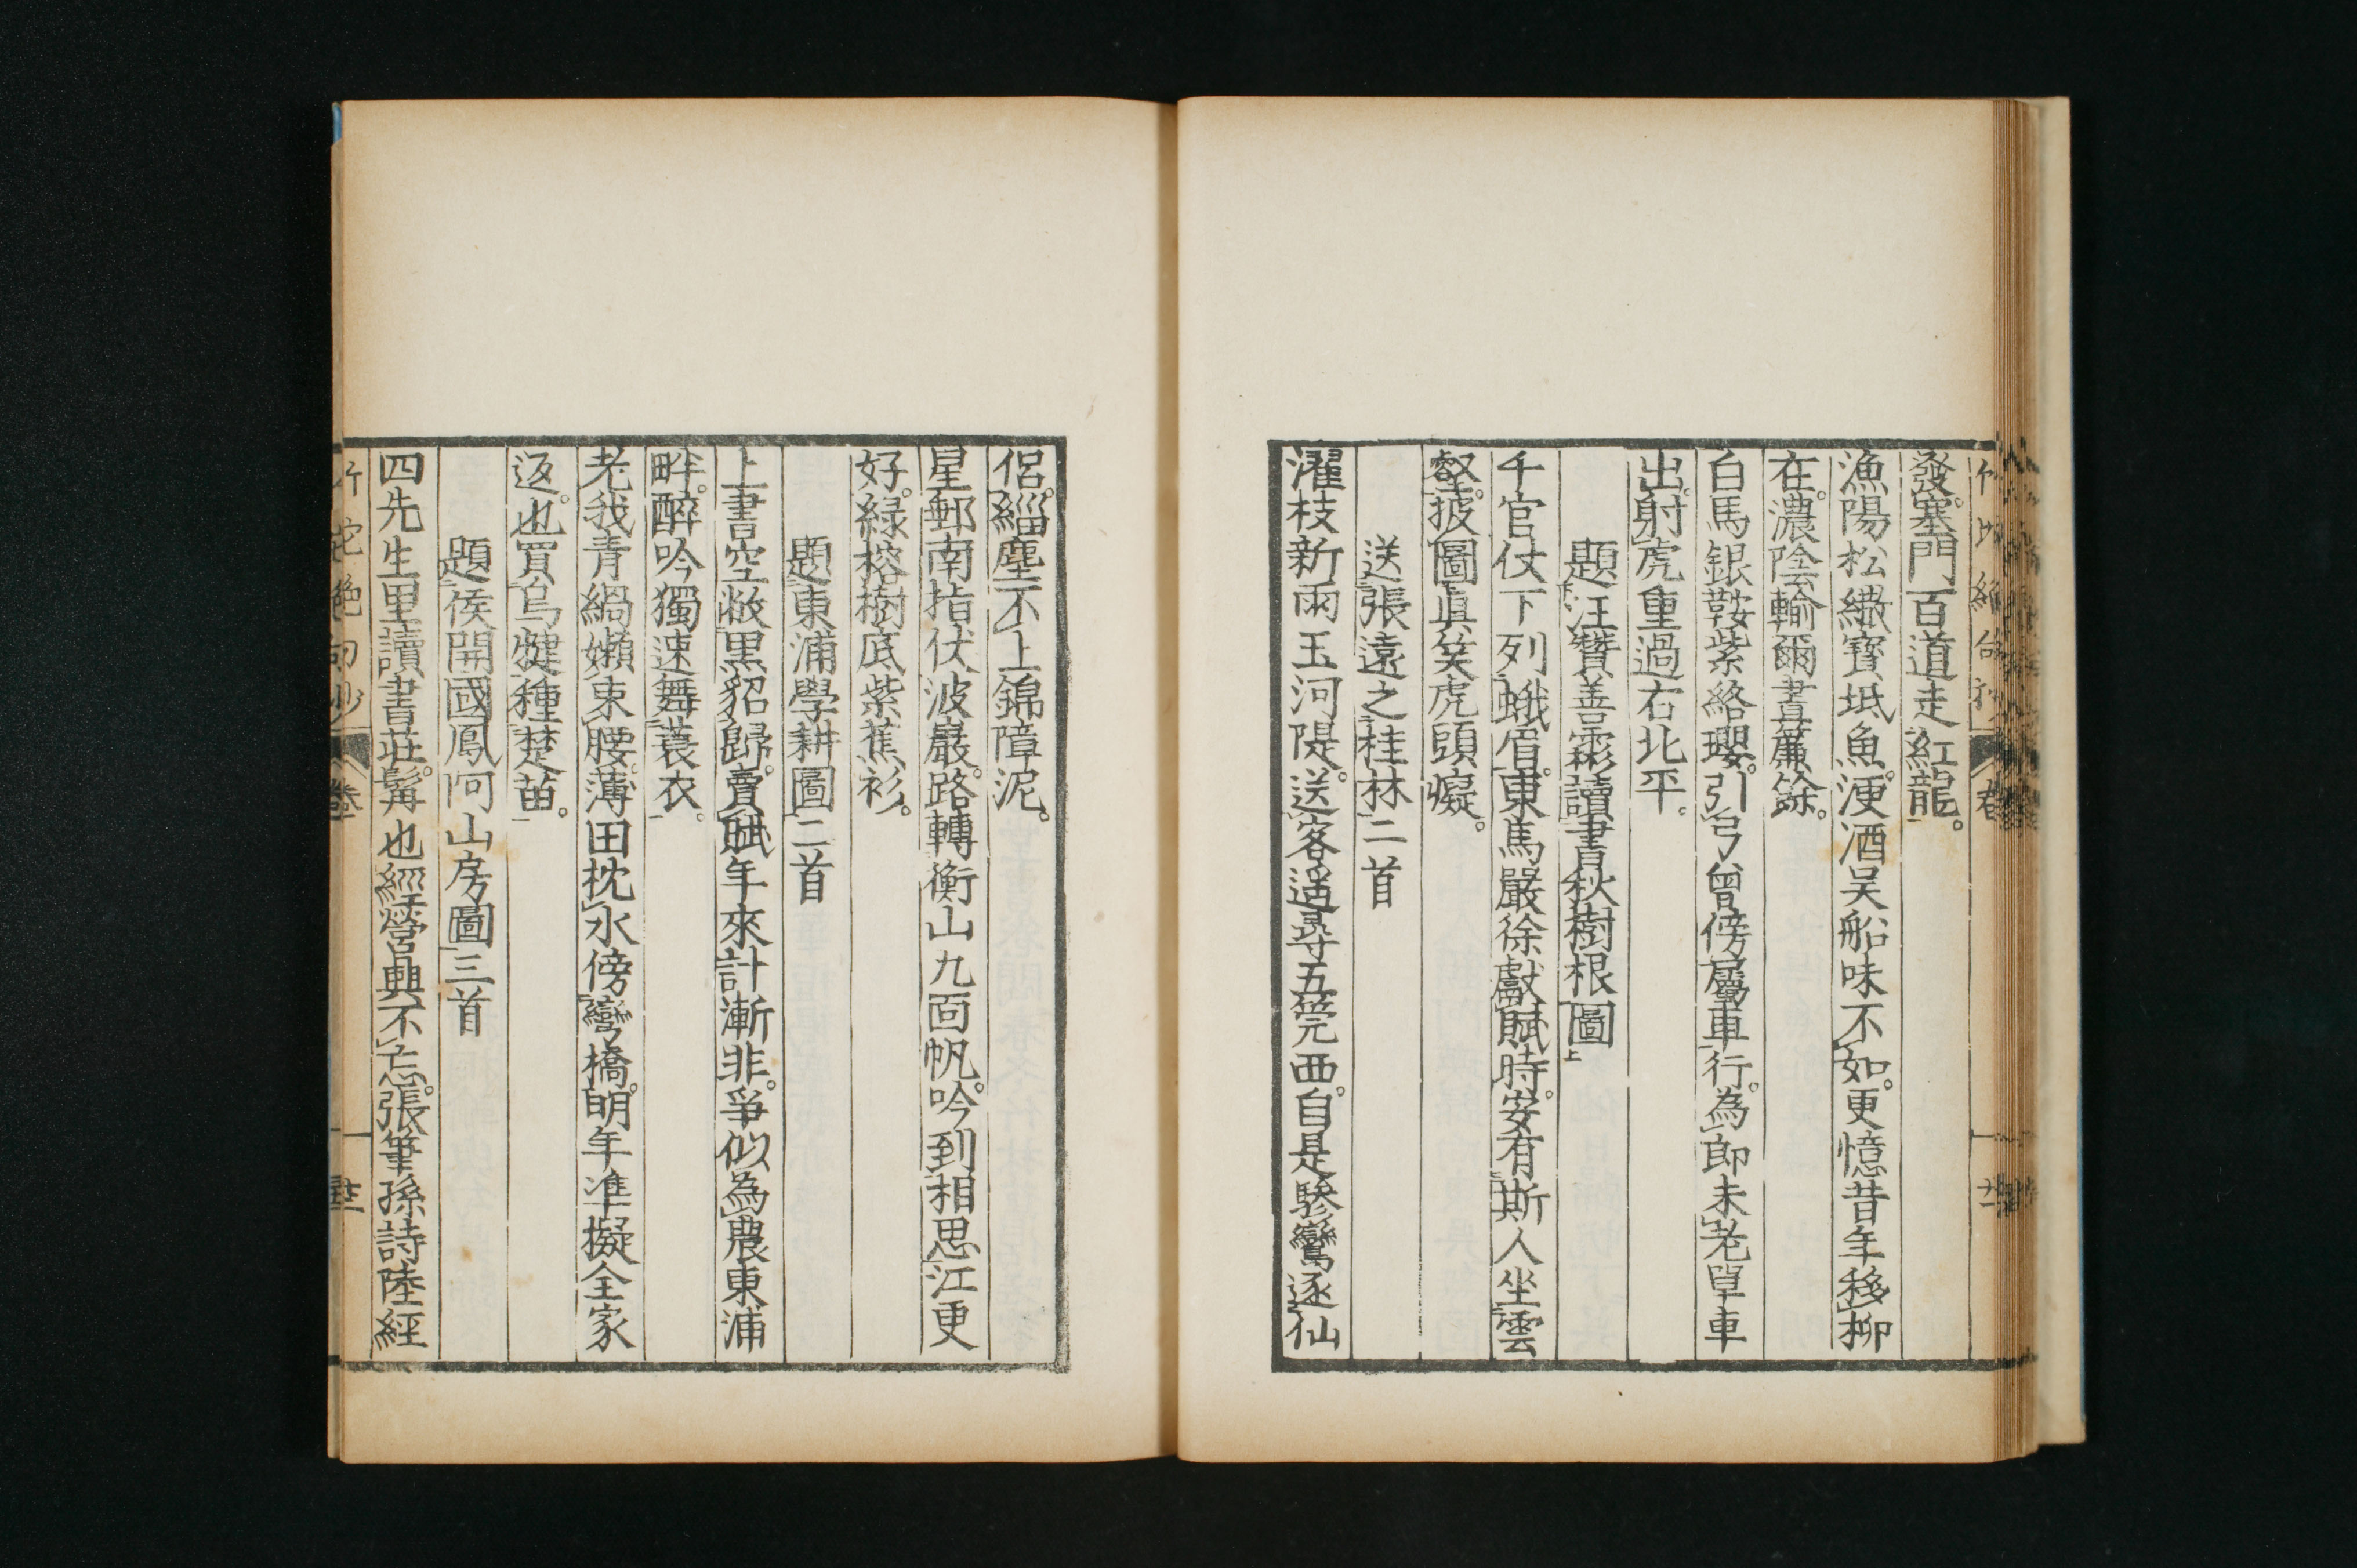 發。塞門百道走紅龍。
漁陽松繖寶坻魚。浭酒吴船味不如。更憶昔年移柳
在。濃陰輸爾晝簾餘。
白馬銀鞍紫絡瓔。引弓曾傍屬車行。為郎未老單車
出。射虎重過右北平。
題汪贊善霦讀書秋樹根圖
千官仗下列蛾眉。東馬嚴徐獻賦時。安有斯人坐雲
壑。披圖真笑虎頭癡。
送張遠之桂林二首
濯枝新雨玉河隄。送客遥尋五筦西。自是驂鸞逐仙
侶。緇塵不上錦障泥。
星郵南指伏波巖。路轉衡山九靣帆。吟到相思江更
好。緑榕樹底紫蕉衫。
題東浦學耕圖二首
上書空敝黒貂歸。賣賦年來計漸非。爭似為農東浦
畔。醉吟獨速舞蓑衣。
老我青緺嬾束腰。薄田枕水傍彎橋。明年準擬全家
返。也買烏犍種楚苗。
題侯開國鳳阿山房圖三首
四先生里讀書莊。髯也經營興不忘。張筆孫詩陸經